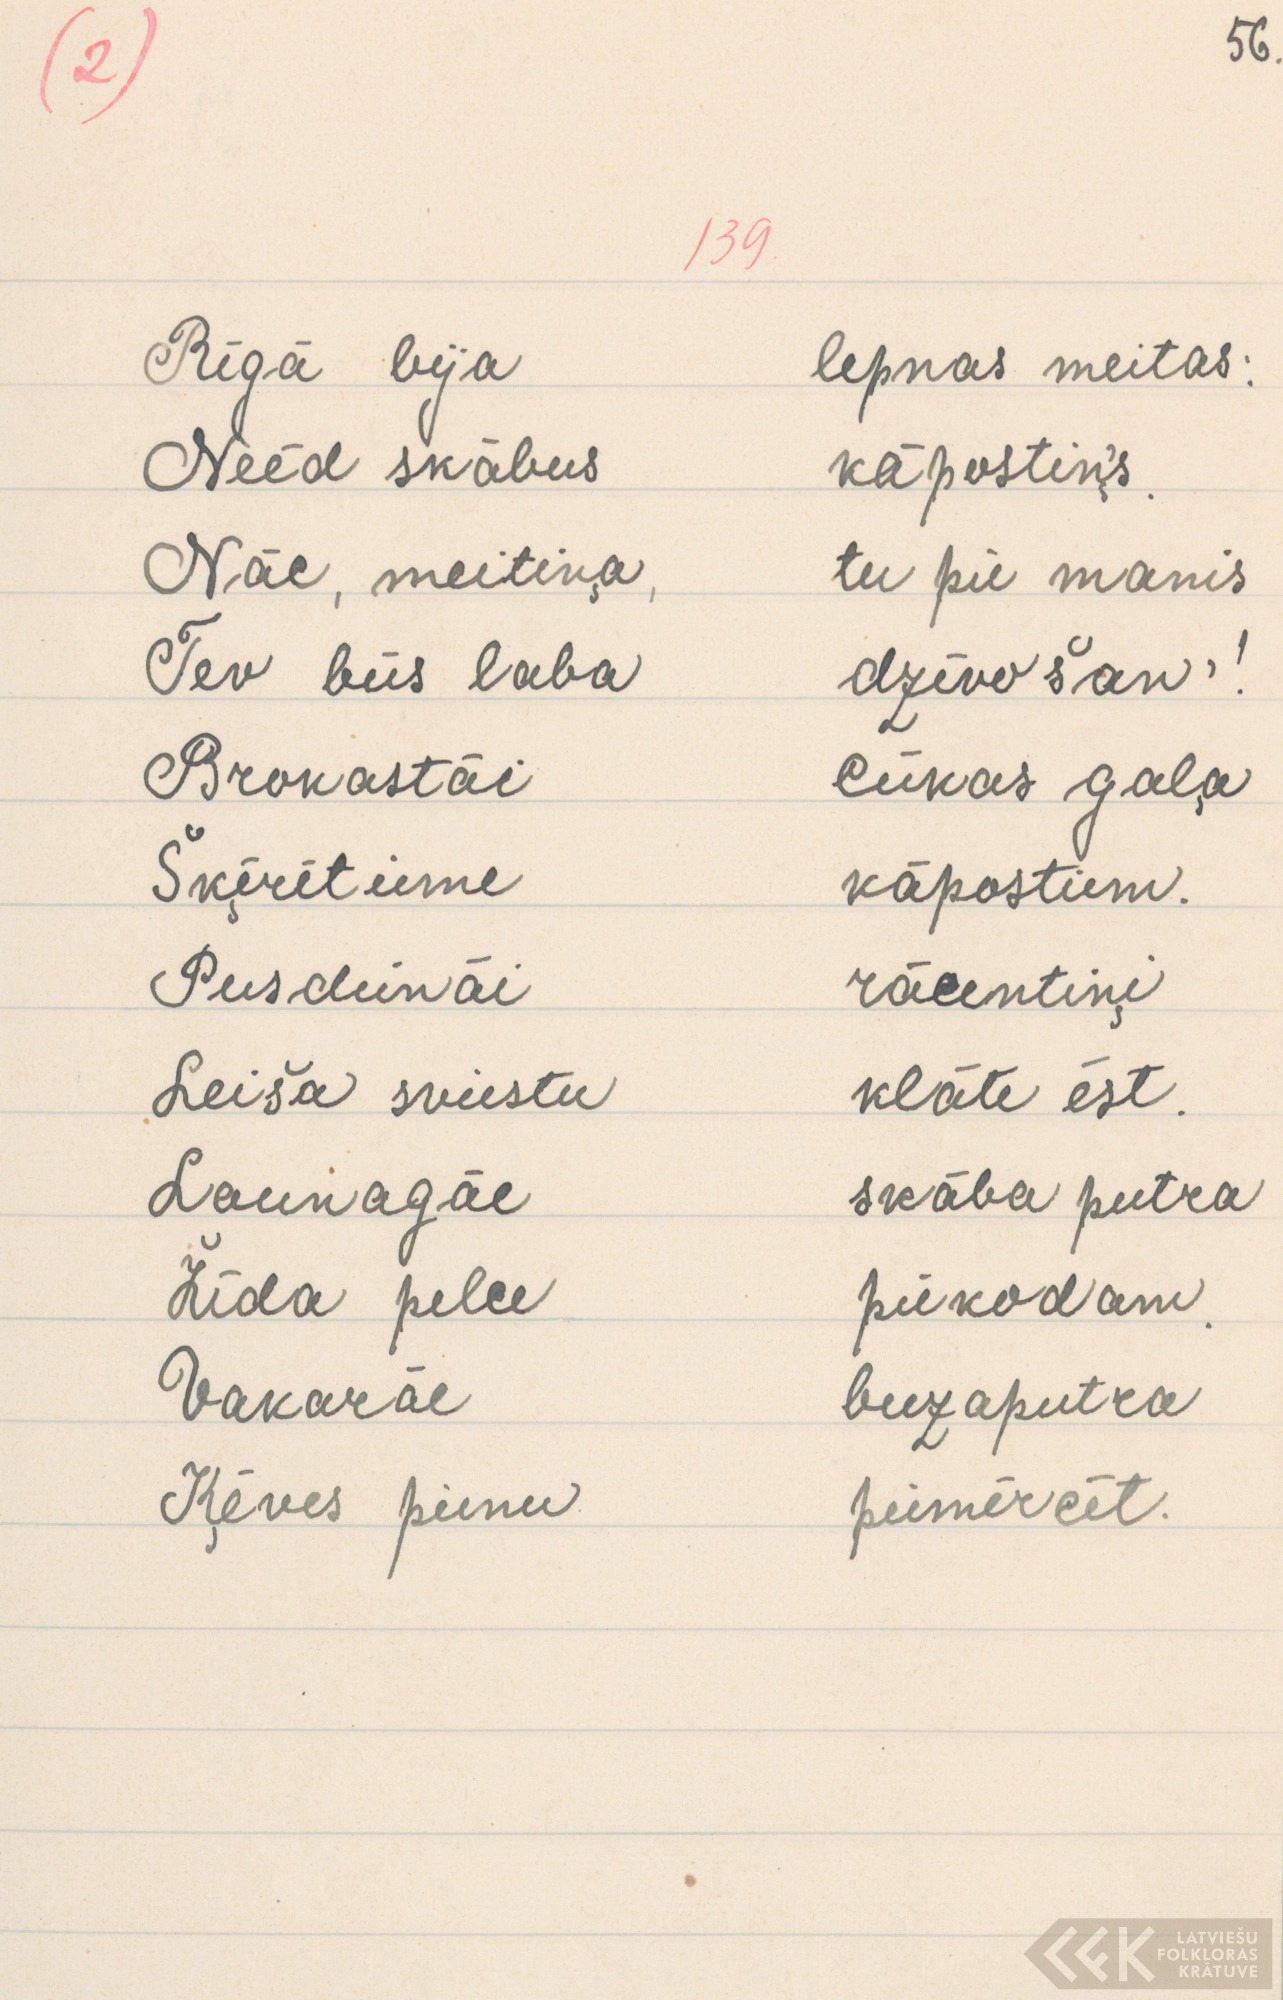 (2)
56.
139.
Rīgā bija lepnas meitas:
Neēd skābus kāpostiņs.
Nāc, meitiņa, tu pie manis
Tev būs laba dzīvošan'!
Brokastāi cūkas gaļa
Šķērētieme kāpostiem.
Pusdienāi rācentiņi
Leiša sviestu klāte ēst.
Launagāe skāba putra
Žīda pelce piekodam.
Vakarāe buzaputra
Ķēves pienu piemērcēt.
LATVIEŠU
FOLKLORAS
KRĀTUVE